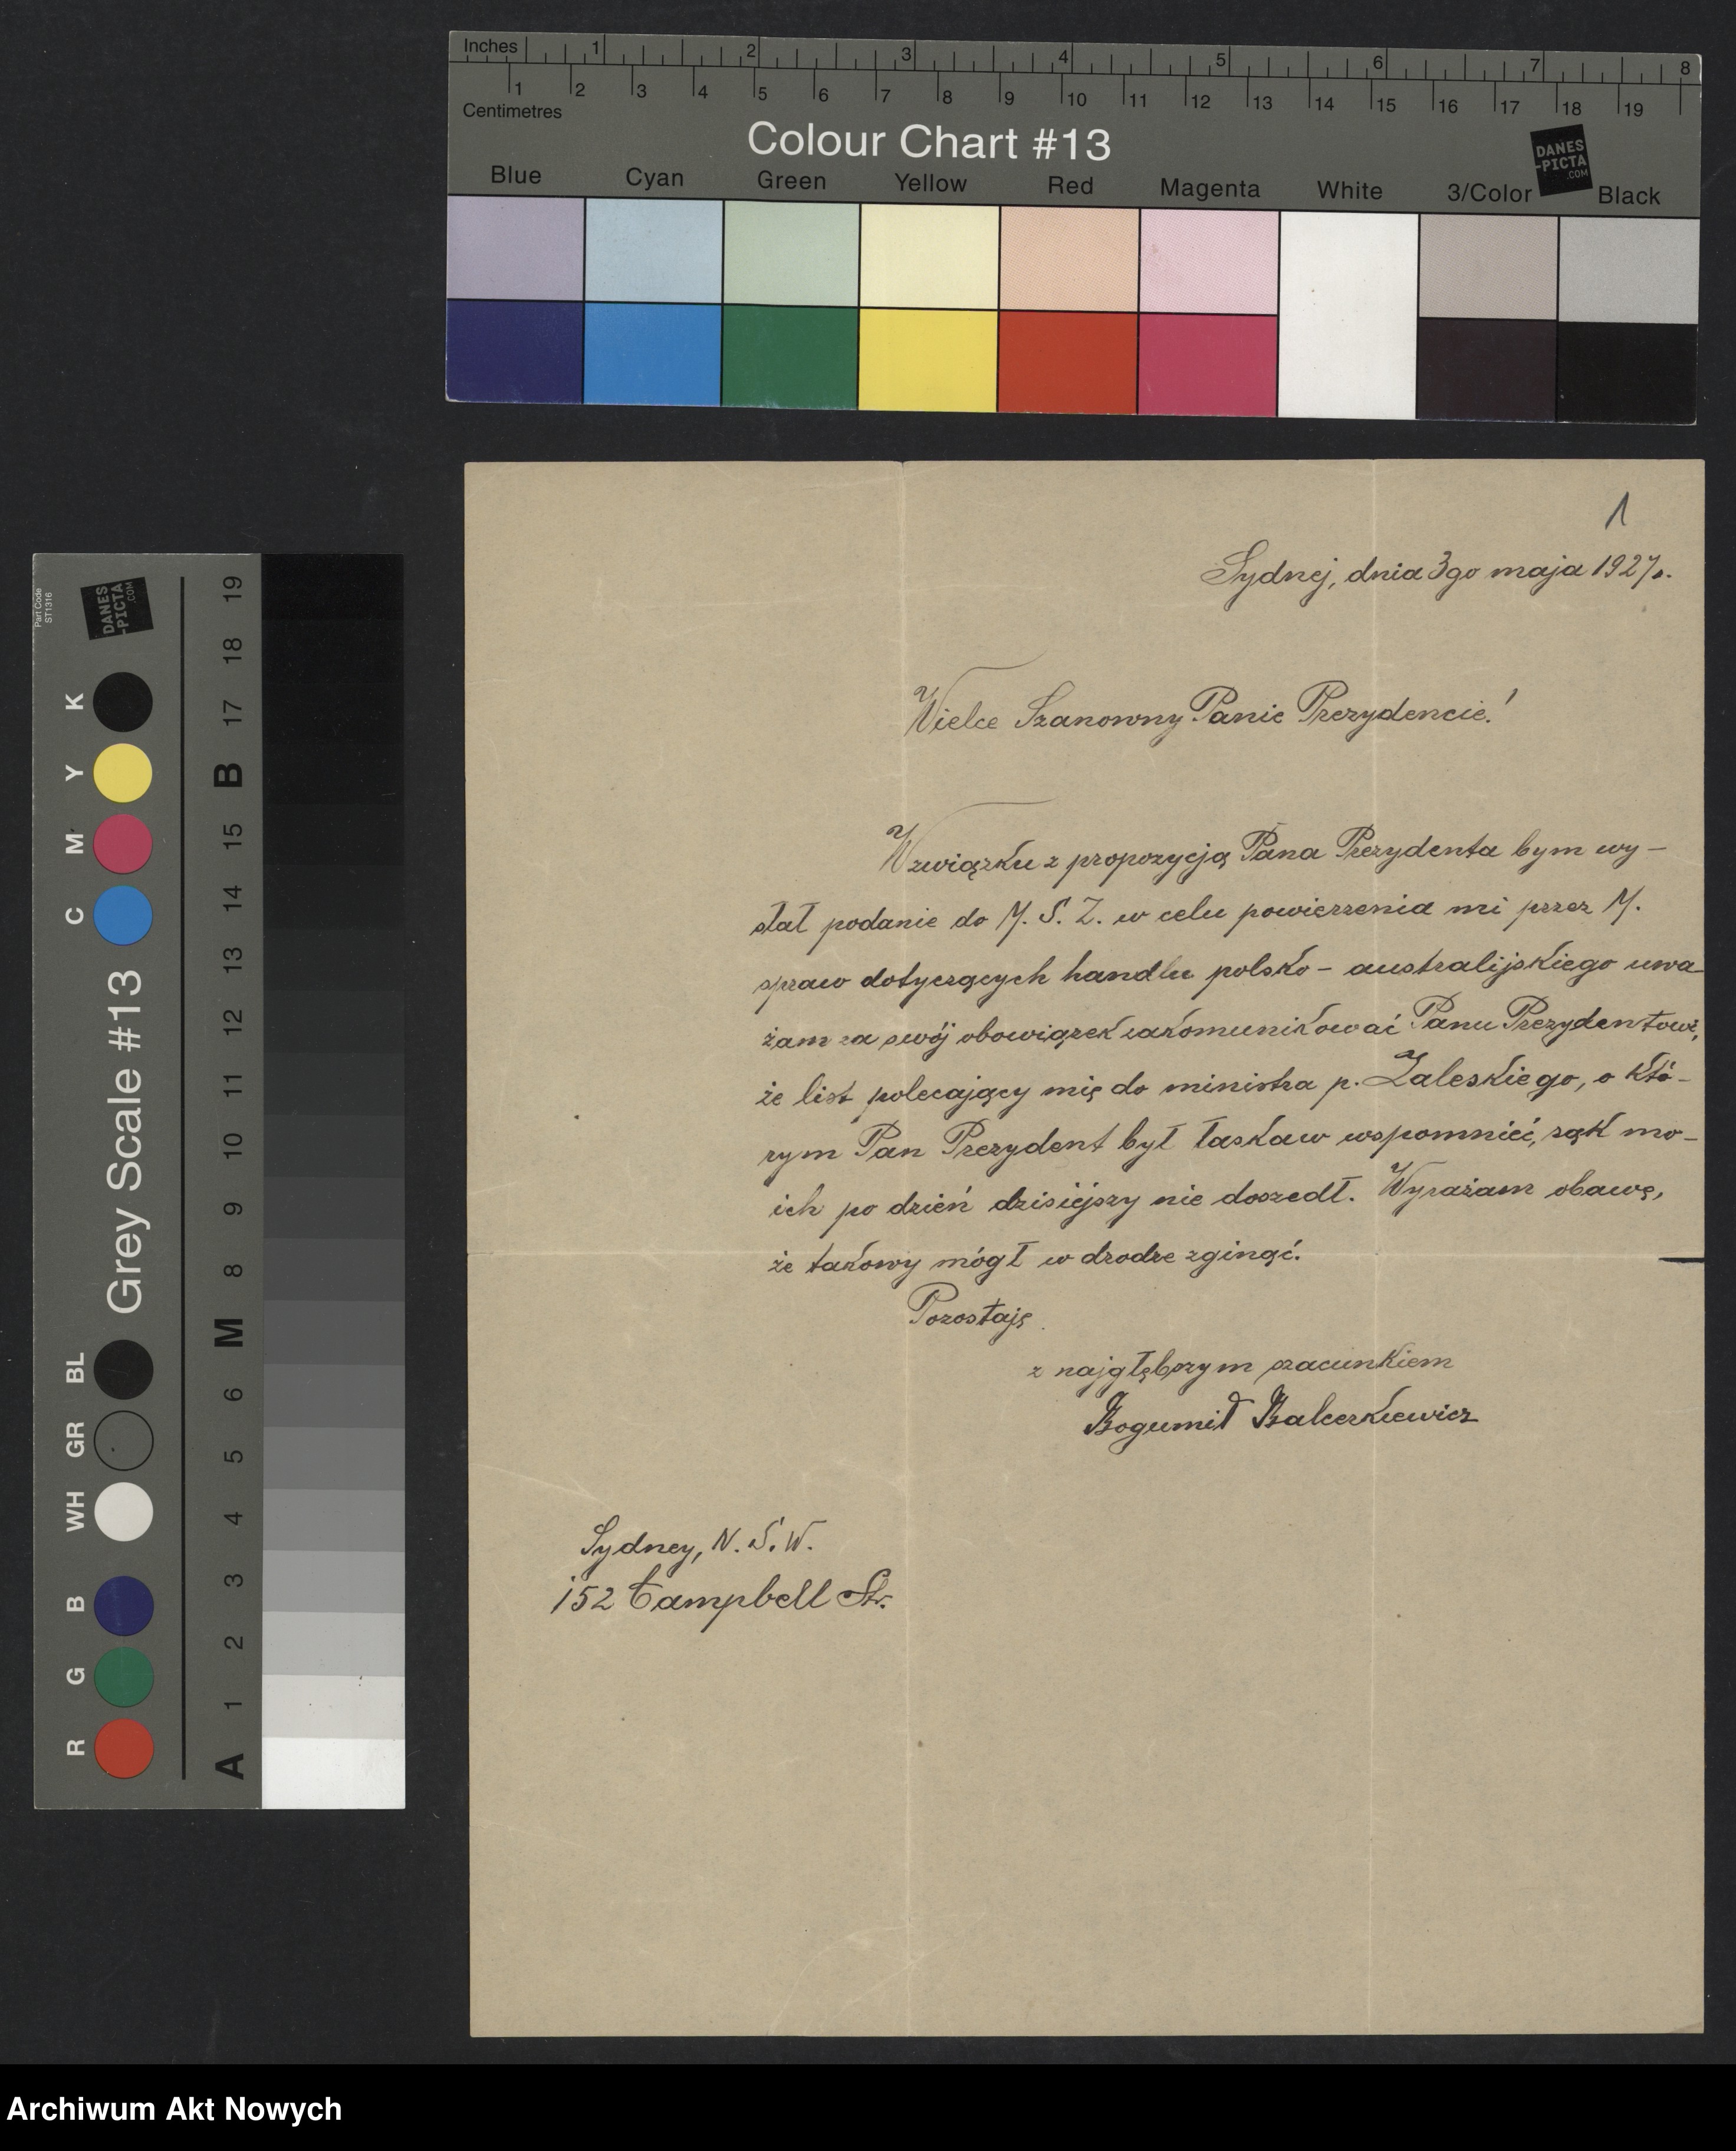 Inches 1 2 3 4 5 6 7 8
1 2 3 4 5 6 7 8 9 10 11 12 13 14 15 16 17 18 19
Centimetres
Colour Chart #13
DANES
-PICTA
.COM
Blue Cyan Green Yellow Red Magenta White 3/Color Black
Part Code
ST1316
DANES
-PICTA
.COM
Grey Scale #13
R G B WH GR BL C M Y K
A 1 2 3 4 5 6 M 8 9 10 11 12 13 14 15 B 17 18 19
1
Sydnej, dnia 3go maja 1927r.
Wielce Szanowny Panie Prezydencie!
W związku z propozycją Pana Prezydenta bym wy-
słał podanie do M. S. Z. w celu powierzenia mi przez M.
spraw dotyczących handlu polsko-australijskiego uwa-
żam za swój obowiązek zakomunikować Panu Prezydentowi,
że list polecający mię do ministra p. Zaleskiego, o któ-
rym Pan Prezydent był łaskaw wspomnieć, rąk mo-
ich po dzień dzisiejszy nie doszedł. Wyrażam obawę,
że takowy mógł w drodze zginąć.
Pozostaję
z najgłębszym szacunkiem
Bogumił Balcerkiewicz
Sydney, N. S. W.
152 Campbell Str.
Archiwum Akt Nowych